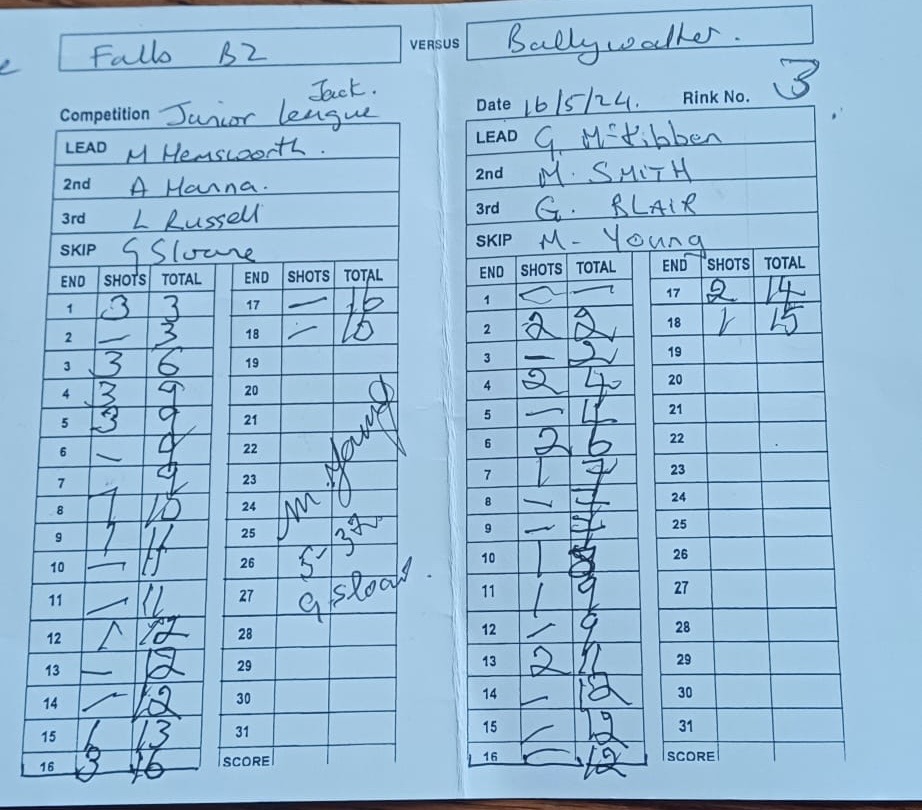 Falls B2 VERSUS Ballywalter.
Jack.
Competition Junior league Date 16/5/24. Rink No. 3
LEAD M Hemsworth. LEAD G. McKibben
2nd A Hanna. 2nd M. SMITH
3rd L Russell 3rd G. BLAIR
SKIP G Sloane SKIP M- Young
END SHOTS TOTAL END SHOTS TOTAL END SHOTS TOTAL END SHOTS TOTAL
1 3 3 17 — 16 1 — — 17 2 14
2 — 3 18 — 16 2 2 2 18 1 15
3 3 6 19 3 — 2 19
4 3 9 20 4 2 4 20
5 3 9 21 5 — 4 21
6 — 9 22 6 2 6 22
7 9 23 7 1 7 23
8 1 10 24 M. Young 8 — 7 24
9 1 11 25 9 — 7 25
10 — 11 26 5' 32. 10 1 8 26
11 — 11 27 G Sloan. 11 1 9 27
12 1 12 28 12 — 9 28
13 — 12 29 13 2 11 29
14 — 12 30 14 — 12 30
15 1 13 31 15 — 12 31
16 3 16 SCORE 16 — 12 SCORE